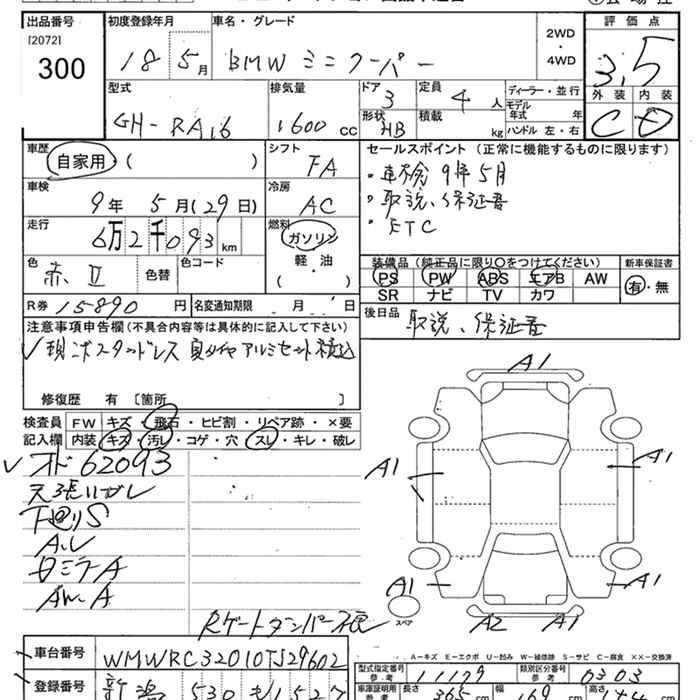 出品番号
[2072]
300
初度登録年月
18 5月
車名・グレード
BMW ミニクーパー
2WD
・
4WD
評価点
3.5
外装 内装
C D
型式
GH-RA16
排気量
1600 cc
ドア
3
形状
HB
定員
4 人
積載
kg
ディーラー・並行
モデル
年式 年
ハンドル 左・右
車歴
自家用・( )
シフト
FA
車検
9年 5月(29日)
冷房
AC
走行
6万2千093 km
燃料
ガソリン
軽・油
( )
色
赤II
色替
色コード
R券 15890 円
名変通知期限 月 日
セールスポイント(正常に機能するものに限ります)
・車検9年5月
・取説、保証書
・ETC
装備品(純正品に限り○をつけてください)
PS PW ABS エアB AW
SR ナビ TV カワ
新車保証書
有・無
後日品 取説、保証書
注意事項申告欄(不具合内容等は具体的に記入して下さい)
修復歴 有 〔箇所 〕
検査員
記入欄
FW キズ・飛石・ヒビ割・リペア跡・×要
内装 キズ・汚レ・コゲ・穴・スレ・キレ・破レ
✓オド62093
天張ハガレ
下廻りS
A.U
ロミラーA
AW.A
Rゲートダンパー不良
A1
A1
A1
A1
A1
A2 A1
スペア
A=キズ E=エクボ U=凹み W=補修跡 S=サビ C=腐食 ××=交換済
車台番号 WMWRC32010TJ29602
登録番号 新潟 530 も1527
型式指定番号
参考
11179
類別区分番号
参考
0303
車庫証明用
参考
長さ 365 cm 幅 169 cm 高さ 144 cm